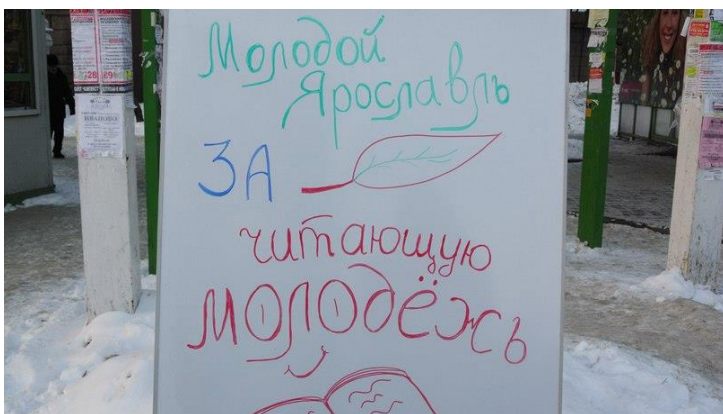 Молодой
Ярославль
ЗА
читающую
молодёжь